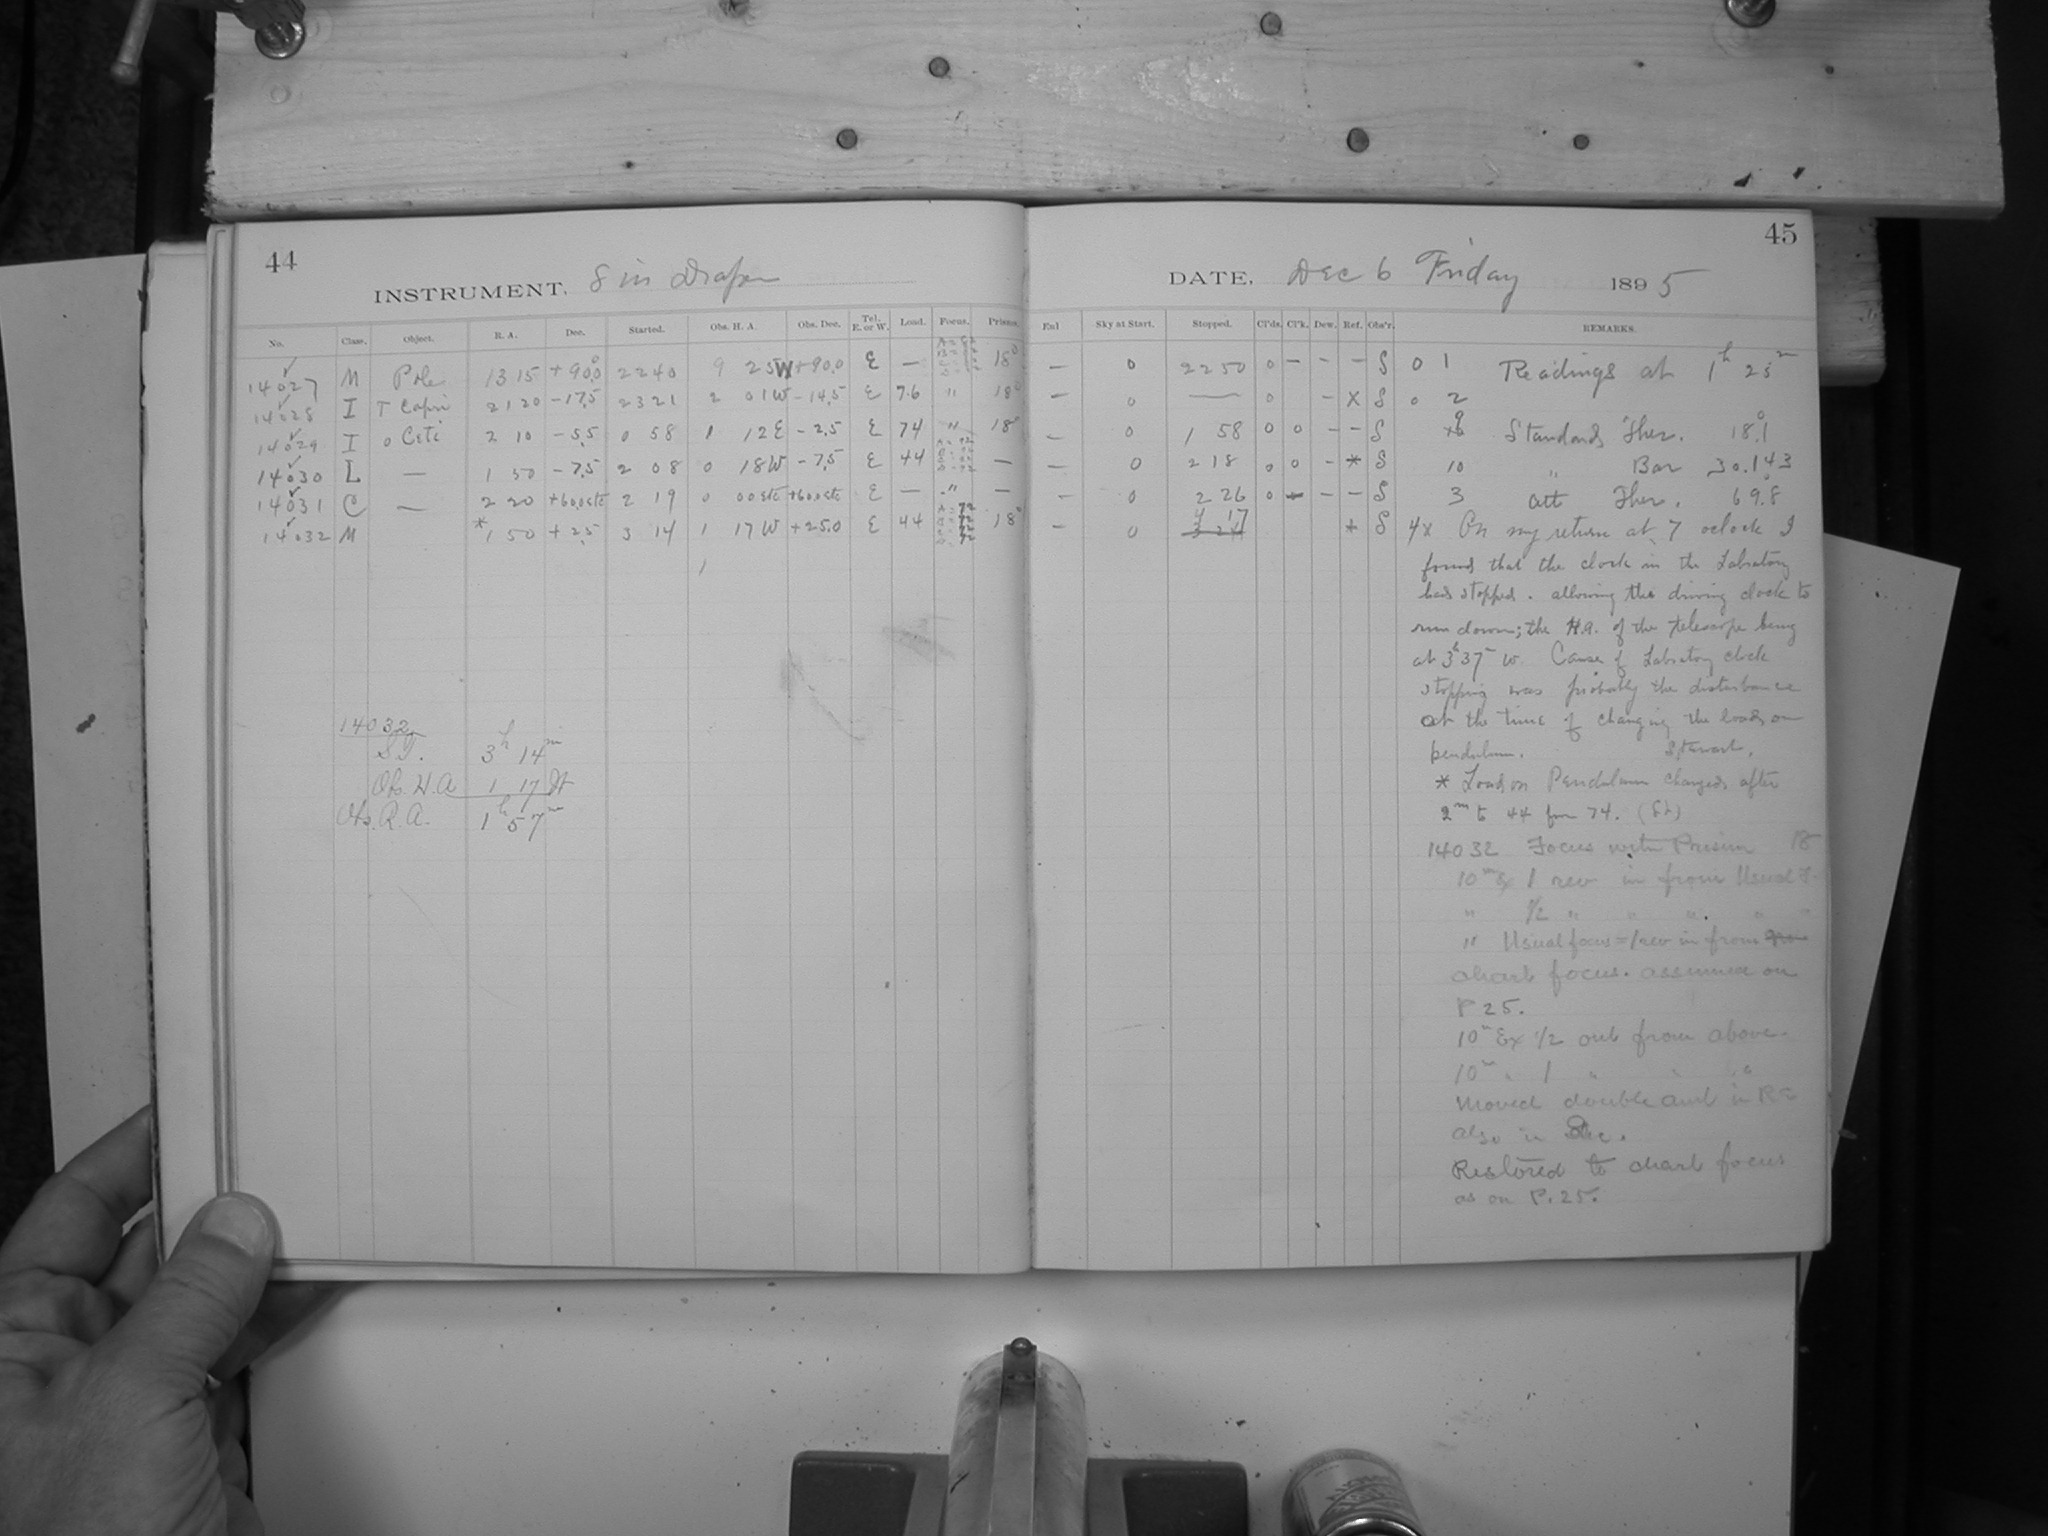 44
INSTRUMENT, 8 in Draper
No. Class. Object. R. A. Dec. Started. Obs. H. A. Obs. Dec. Tel. E. or W. Load. Focus. Prisms.
14027 M Pole 13 15 +90.0 22 40 9 25 W +90.0 E — 18°
14028 I T Capri 21 20 -17.5 23 21 2 01 W -14.5 E 76 " 18°
14029 I o Ceti 2 10 -5.5 0 58 1 12 E -2.5 E 74 " 18°
14030 L — 1 50 -7.5 2 08 0 18 W -7.5 E 44 —
14031 C — 2 20 +60.0 2 19 0 00 +60.0 E — " —
14032 M *1 50 +25 3 14 1 17 W +25.0 E 44 18°
14032
S.T. 3h 14m
Obs. H.A 1 17 W
Obs. R.A. 1h 57m
45
DATE, Dec 6 Friday 1895
Sky at Start. Stopped. Cl'ds. Cl'k. Dew. Ref. Obs'r. REMARKS.
— 0 22 50 0 — – – S 0 1 Readings at 1h 25m
— 0 — 0 – X S 0 2
— 0 1 58 0 0 – – S 9 Standard Ther. 18.1
— 0 2 18 0 0 – * S 10 " Bar 30.143
— 0 2 26 0 – – – S 3 Att Ther. 69.8
— 0 7 17 * S 4x On my return at 7 oclock I
found that the clock in the Labratory
had stopped. allowing the driving clock to
run down; the H.A. of the telescope being
at 3h 37m W. Cause of Labratory clock
stopping was probably the disturbance
at the time of changing the loads on
pendulum. Stewart.
* Load on Pendulum changed after
2m to 44 from 74. (St)
14032 Focus with Prism 18
10m Ex 1 rev in from Usual
" 1/2 " " " " "
" Usual focus = 1 rev in from
chart focus. assumed on
P 25.
10m Ex 1/2 out from above.
10m " 1 " " "
Moved double amt in RA
also in Dec.
Restored to chart focus
as on P. 25.